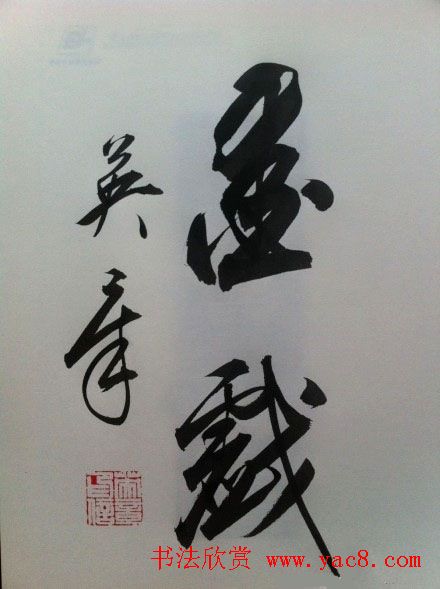 墨戲
英章
书法欣赏 www.yac8.com